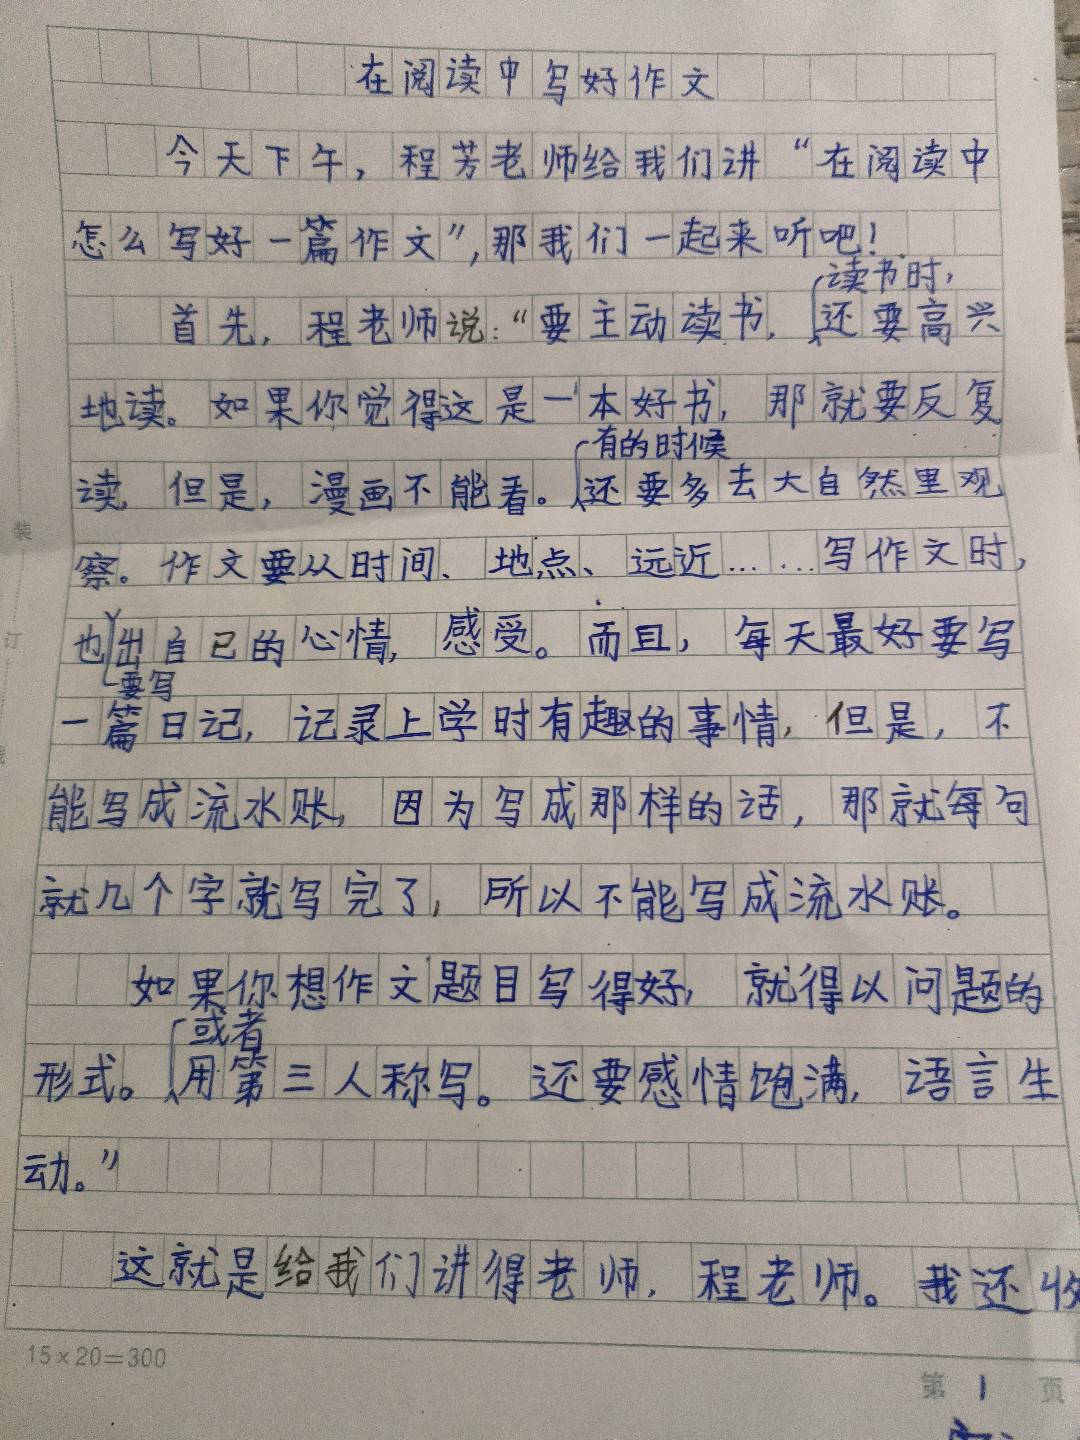 在阅读中写好作文
今天下午，程芳老师给我们讲“在阅读中
怎么写好一篇作文”，那我们一起来听吧！
读书时，
首先，程老师说：“要主动读书，还要高兴
地读。如果你觉得这是一本好书，那就要反复
有的时候
读，但是，漫画不能看。还要多去大自然里观
察。作文要从时间、地点、远近……写作文时，
也出自己的心情，感受。而且，每天最好要写
要写
一篇日记，记录上学时有趣的事情，但是，不
能写成流水账，因为写成那样的话，那就每句
就几个字就写完了，所以不能写成流水账。
如果你想作文题目写得好，就得以问题的
或者
形式。用第三人称写。还要感情饱满，语言生
动。”
这就是给我们讲得老师，程老师。我还收
15×20=300
第1页
装
订